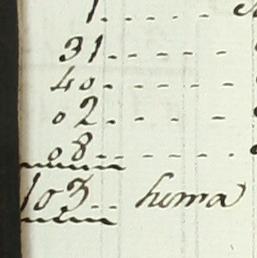 1.
31.
40.
02.
08.
103.. suma